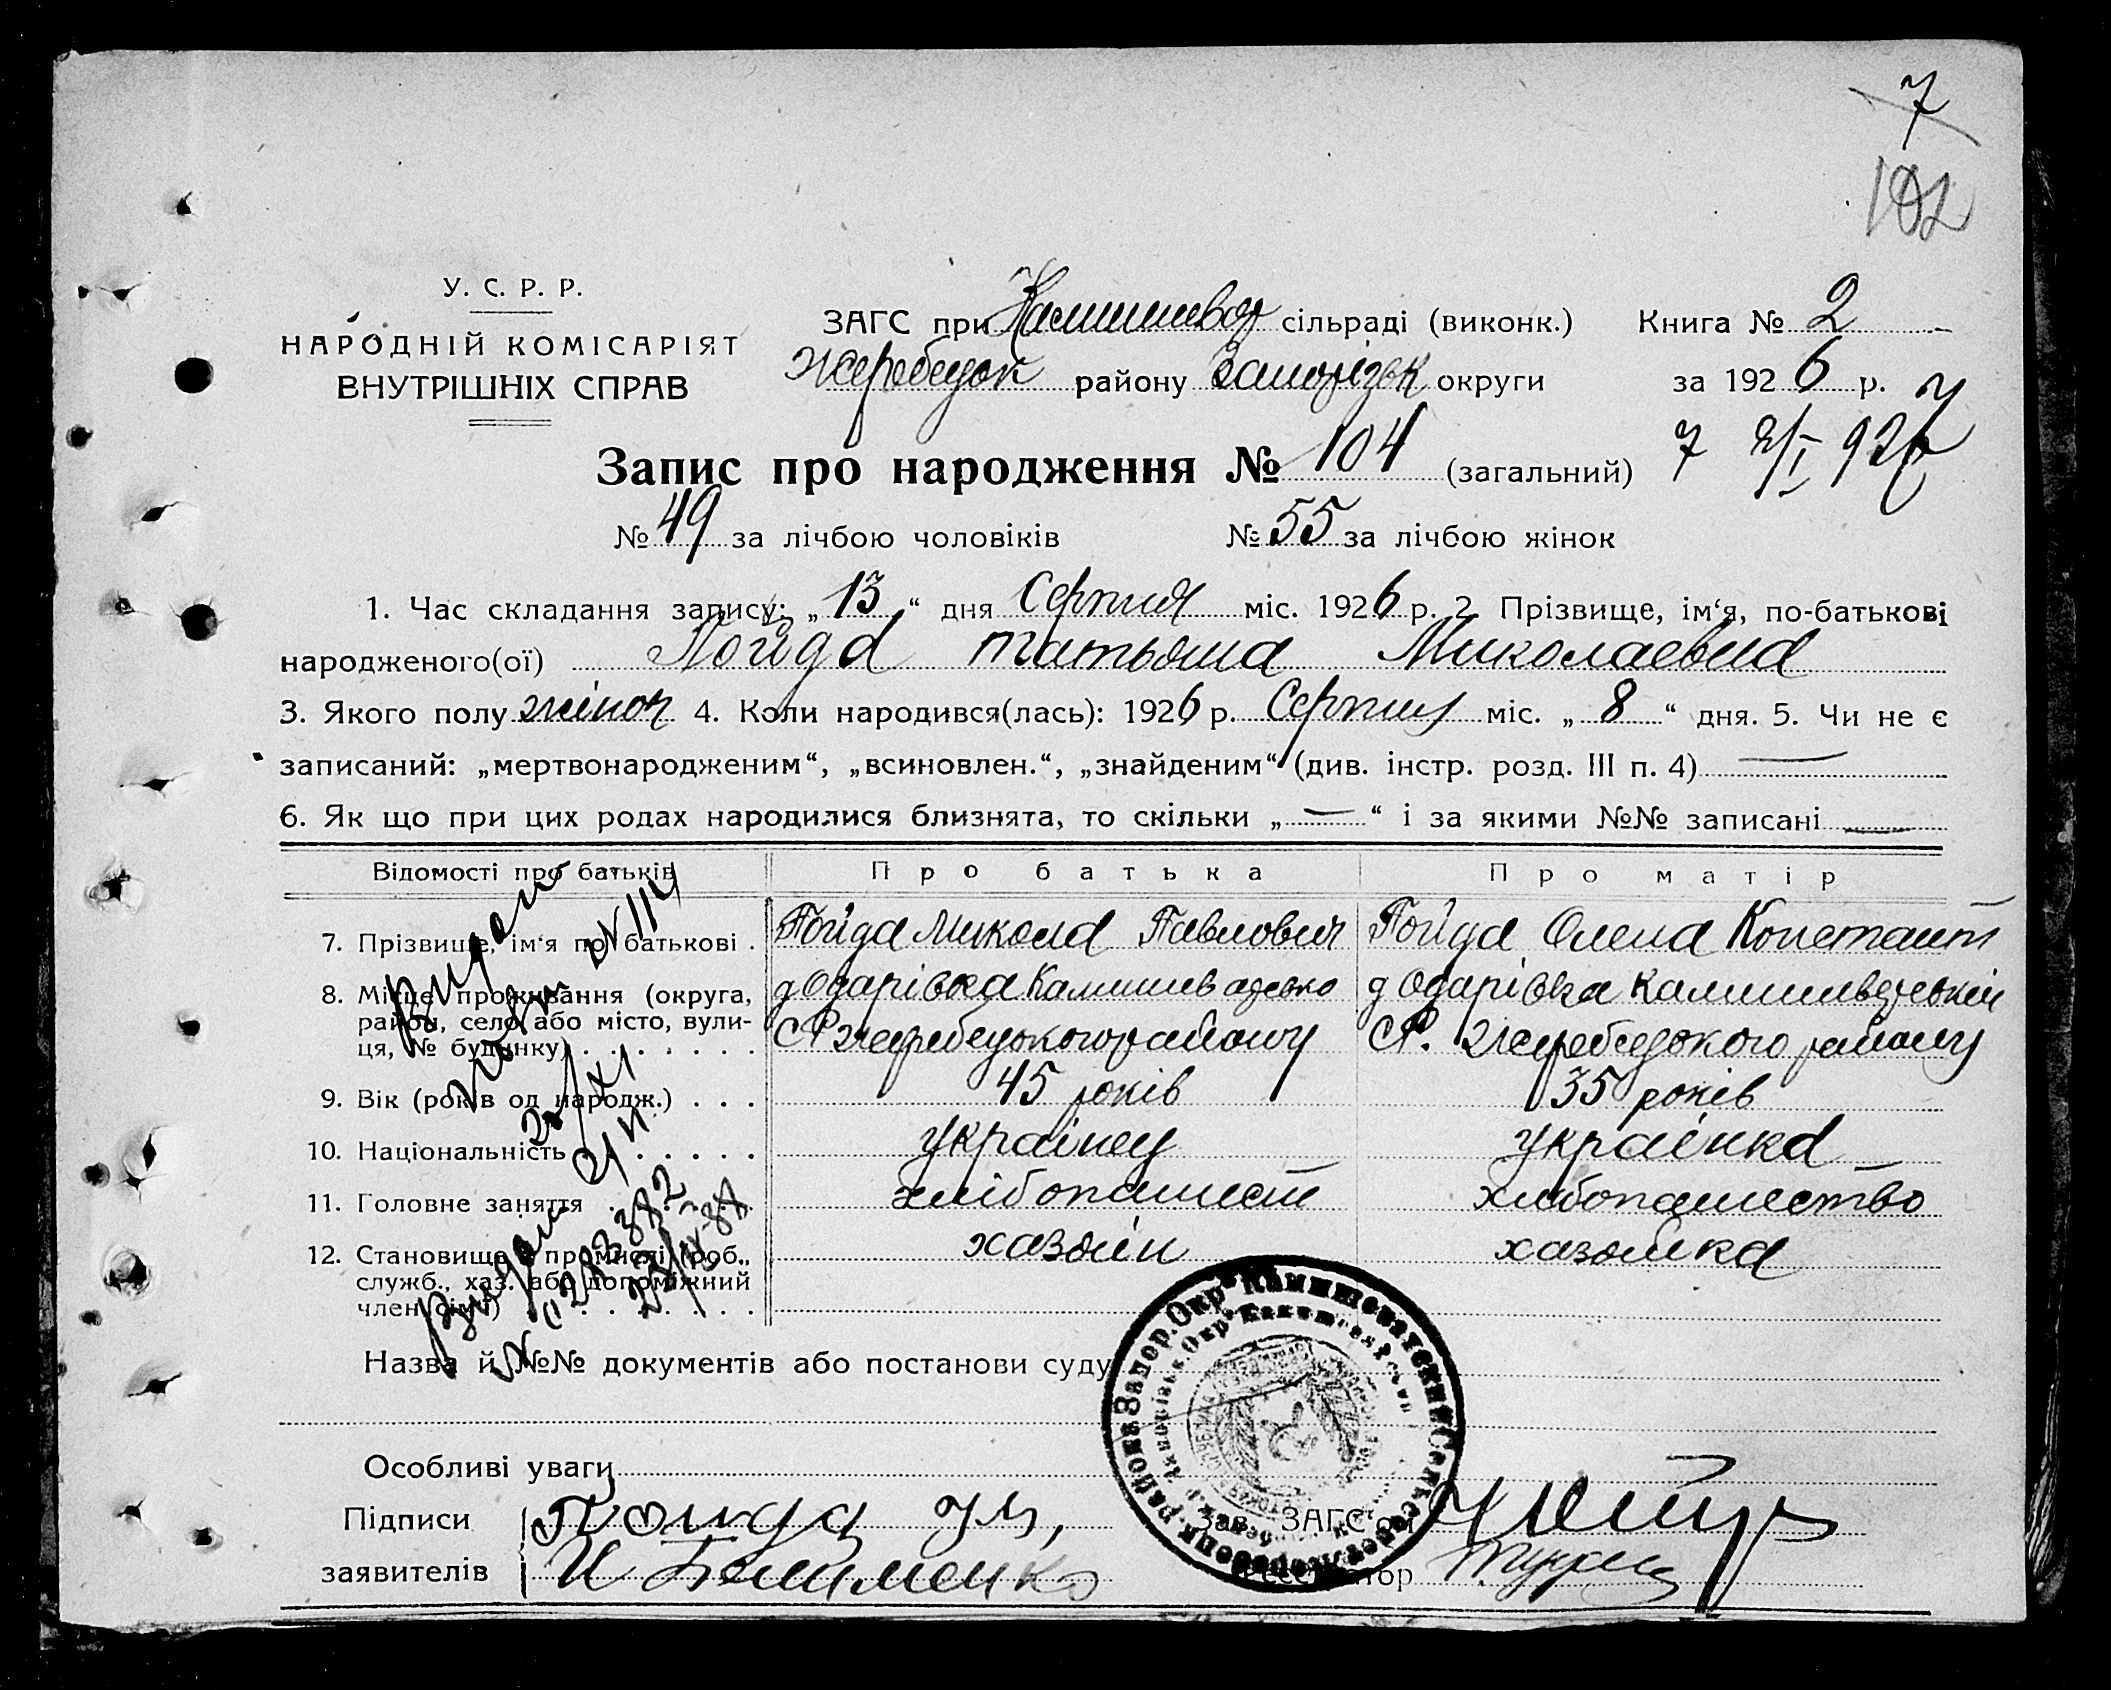 7
102
У. С. Р. Р.
НАРОДНІЙ КОМІСАРІЯТ
ВНУТРІШНІХ СПРАВ
ЗАГС при Камишевах сільраді (виконк.) Книга № 2
Жеребецьк району Запорізьк округи за 1926 р.
Запис про народження № 104 (загальний)
№ 49 за лічбою чоловіків № 55 за лічбою жінок
1. Час складання запису: „13“ дня Серпня міс. 1926 р. 2. Прізвище, ім‘я, по-батькові
народженого(ої) Пойда Татьяна Миколаевна
3. Якого полу жіноч 4. Коли народився(лась): 1926 р. Серпня міс. „8“ дня. 5. Чи не є
записаний: „мертвонародженим“, „всиновлен.“, „знайденим“ (див. інстр. розд. III п. 4) —
6. Як що при цих родах народилися близнята, то скільки „—“ і за якими №№ записані —
Відомості про батьків Про батька Про матір
7. Прізвище, ім‘я по батькові . Пойда Микола Павлович Пойда Олена Констант
8. Місце проживання (округа, район, село або місто, вулиця, № будинку) д Одарівка
СР Жеребецького району д Одарівка СР. Жеребецького району
9. Вік (років од народж.) . . . 45 років 35 років
10. Національність українец українка
11. Головне заняття хлібопашест хлібопашество
12. Становище в промислі (роб., хазяїн хазяйка
служб., хаз. або допоміжний
член сім‘ї)
Назва й №№ документів або постанови суду
Особливі уваги
Підписи Пойда
заявителів
Зав. ЗАГС‘ом